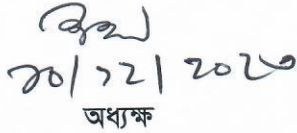 ২০/১২/২০২৩
অধ্যক্ষ